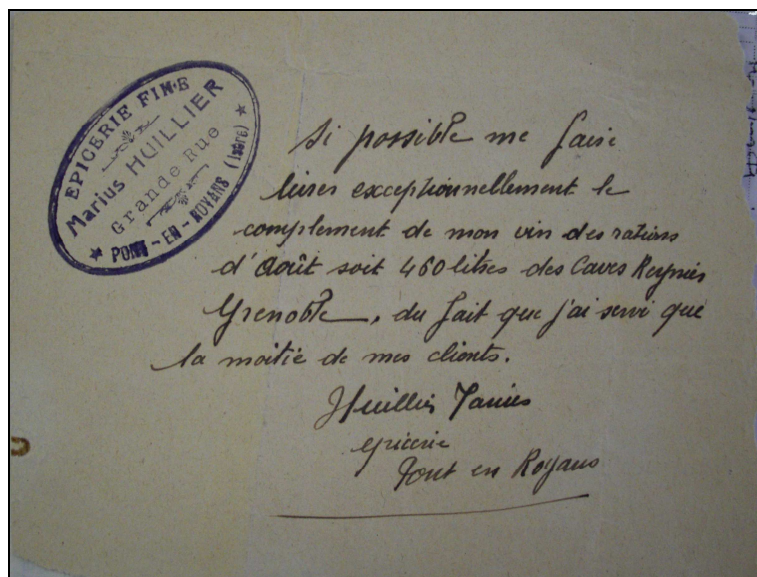 EPICERIE FINE
Marius HUILLIER
Grande Rue
★ PONT-EN-ROYANS (Isère) ★
Si possible me faire
livrer exceptionnellement le
complement de mon vin des rations
d'Août soit 460 litres des Caves Reynier
Grenoble, du fait que j'ai servi que
la moitié de mes clients.
Huillier
epicerie
Pont en Royans